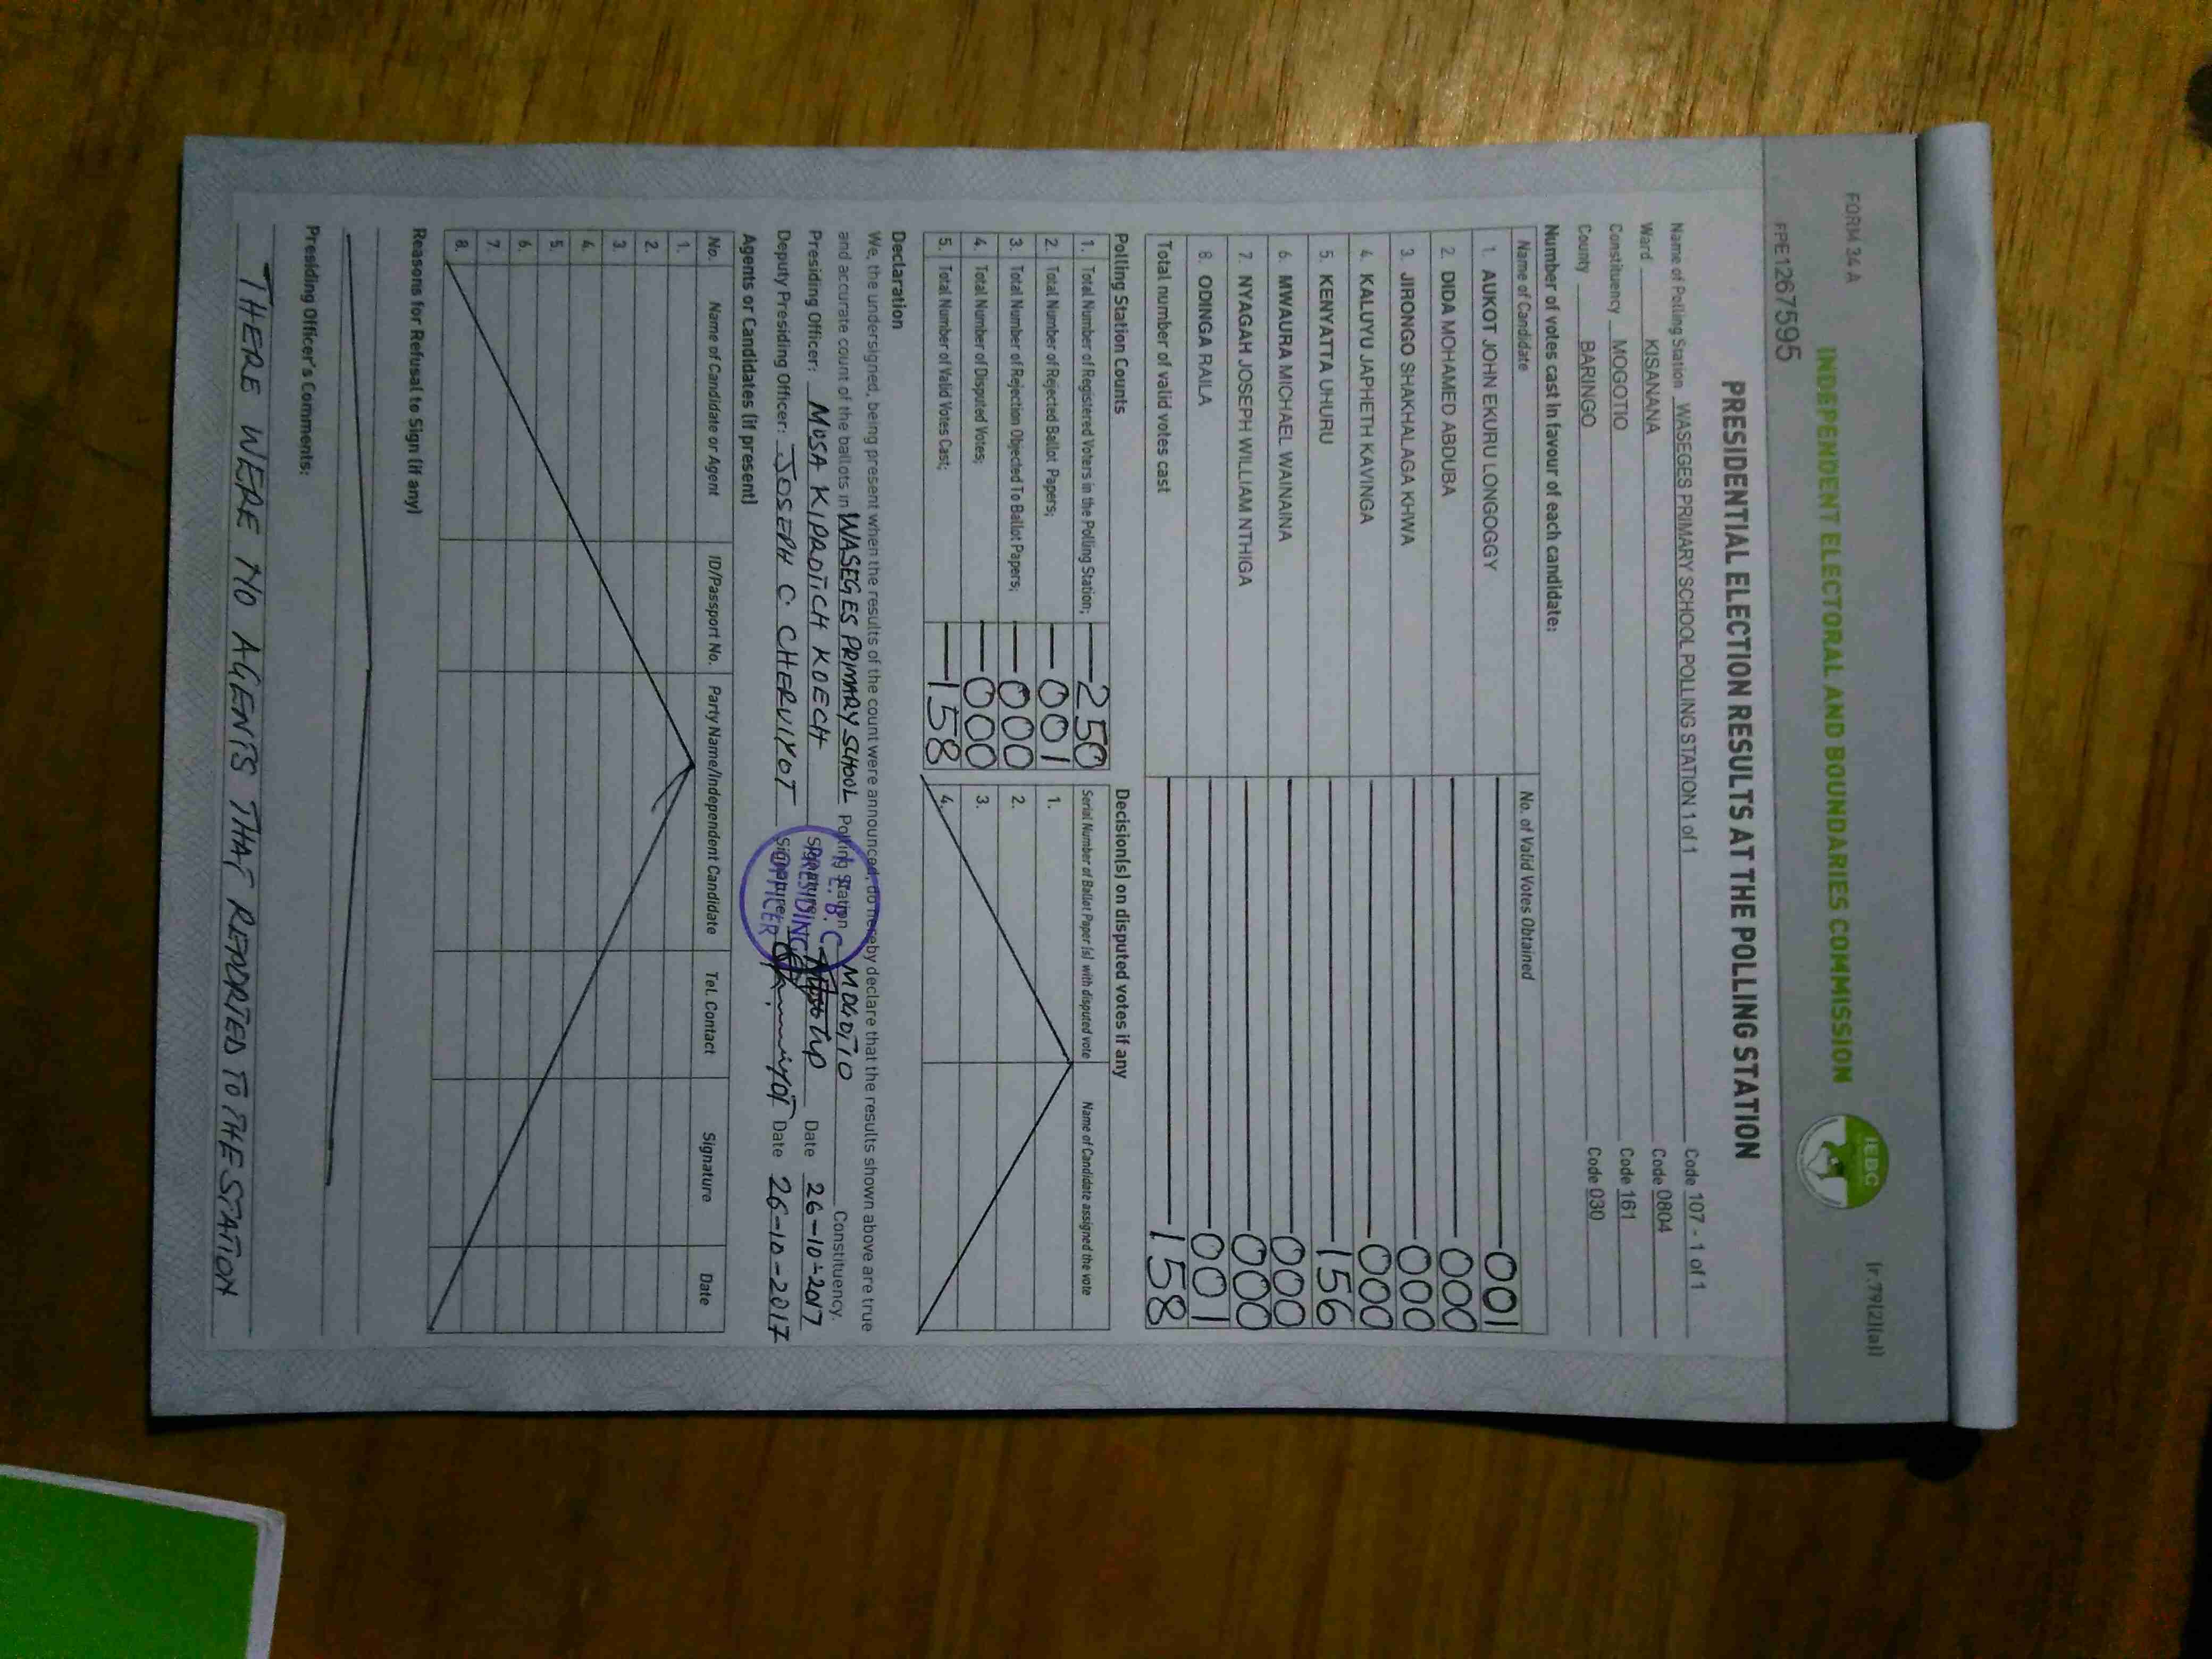 FORM 34 A
(r.79(2)(a))
INDEPENDENT ELECTORAL AND BOUNDARIES COMMISSION
IEBC
FPE1267595
PRESIDENTIAL ELECTION RESULTS AT THE POLLING STATION
Name of Polling Station WASEGES PRIMARY SCHOOL POLLING STATION 1 of 1 Code 107 - 1 of 1
Ward KISANANA Code 0804
Constituency MOGOTIO Code 161
County BARINGO Code 030
Number of votes cast in favour of each candidate:
Name of Candidate No. of Valid Votes Obtained
1. AUKOT JOHN EKURU LONGOGGY 001
2. DIDA MOHAMED ABDUBA 000
3. JIRONGO SHAKHALAGA KHWA 000
4. KALUYU JAPHETH KAVINGA 000
5. KENYATTA UHURU 156
6. MWAURA MICHAEL WAINAINA 000
7. NYAGAH JOSEPH WILLIAM NTHIGA 000
8. ODINGA RAILA 001
Total number of valid votes cast 158
Polling Station Counts
1. Total Number of Registered Voters in the Polling Station; 250
2. Total Number of Rejected Ballot Papers; 001
3. Total Number of Rejection Objected To Ballot Papers; 000
4. Total Number of Disputed Votes; 000
5. Total Number of Valid Votes Cast; 158
Decision(s) on disputed votes if any
Serial Number of Ballot Paper (s) with disputed vote Name of Candidate assigned the vote
1.
2.
3.
4.
Declaration
We, the undersigned, being present when the results of the count were announced, do hereby declare that the results shown above are true
and accurate count of the ballots in WASEGES PRIMARY SCHOOL Polling Station MOGOTIO Constituency.
Presiding Officer: MUSA KIPROTICH KOECH Signature Date 26-10-2017
Deputy Presiding Officer: JOSEPH C. CHERUIYOT Signature Date 26-10-2017
I.E.B.C
PRESIDING
OFFICER
Agents or Candidates (if present)
No. Name of Candidate or Agent ID/Passport No. Party Name/Independent Candidate Tel. Contact Signature Date
1.
2.
3.
4.
5.
6.
7.
8.
Reasons for Refusal to Sign (if any)
Presiding Officer's Comments:
THERE WERE NO AGENTS THAT REPORTED TO THE STATION